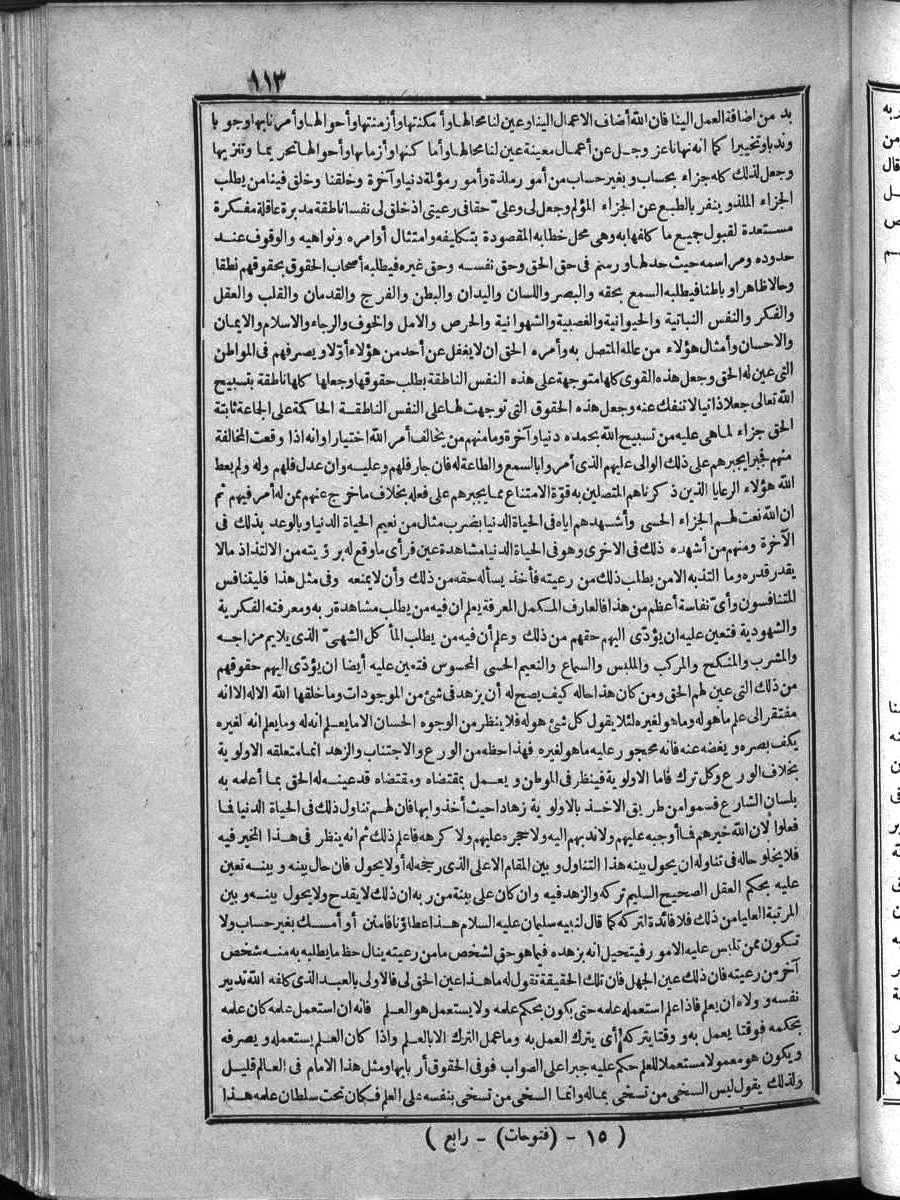 ١١٣
بد من اضافة العمل الينا فان الله أضاف الاعمال الينا وعين لنا محالها وأمكنتها وأزمنتها وأحوالها وأمرنا بها وجوبا
وندبا وتخييرا كما انه نهانا عز وجل عن أعمال معينة عين لنا محالها وأماكنها وأزمانها وأحوالها تحريما وتنزيها
وجعل لذلك كله جزاء بحساب وبغير حساب من أمور ملذة وأمور مؤلمة دنيا وآخرة وخلقنا وخلق فينا من يطلب
الجزاء الملذ وينفر بالطبع عن الجزاء المؤلم وجعل لى وعلىّ حقا فى رعيتى اذ خلق لى نفسا ناطقة مدبرة عاقلة مفكرة
مستعدة لقبول جميع ما كلفها به وهى محل خطابه المقصودة بتكاليفه وامتثال أوامره ونواهيه والوقوف عند
حدوده ومراسمه حيث حد لها ورسم فى حق الحق وحق نفسه وحق غيره فيطلبه أصحاب الحقوق بحقوقهم نطقا
وحالا ظاهرا وباطنا فيطلبه السمع بحقه والبصر واللسان واليدان والبطن والفرج والقدمان والقلب والعقل
والفكر والنفس النباتية والحيوانية والغضبية والشهوانية والحرص والامل والخوف والرجاء والاسلام والايمان
والاحسان وأمثال هؤلاء من عالمه المتصل به وأمره الحق ان لا يغفل عن أحد من هؤلاء أوّلا ويصرفهم فى المواطن
التى عين له الحق وجعل هذه القوى كلها متوجهة على هذه النفس الناطقة بطلب حقوقها وجعلها كلها ناطقة بتسبيح
الله تعالى جعلا ذاتيا لا تنفك عنه وجعل هذه الحقوق التى توجهت لها على النفس الناطقة الحاكمة على الجاعة ثابتة
الحق جزاء لما هى عليه من تسبيح الله بحمده دنيا وآخرة وما منهم من يخالف أمر الله اختيارا وانه اذا وقعت المخالفة
منهم فجبرا يجبرهم على ذلك الوالى عليهم الذى أمروا بالسمع والطاعة له فان جار فلهم وعليه وان عدل فلهم وله ولم يعط
الله هؤلاء الرعايا الذين ذكرناهم المتصلين به قوّة الامتناع مما يجبرهم على فعله بخلاف ما خرج عنهم ممن له أمر فيهم ثم
ان الله نعت لهم الجزاء الحسى وأشهدهم اياه فى الحياة الدنيا بضرب مثال من نعيم الحياة الدنيا وبالوعد بذلك فى
الآخرة ومنهم من أشهده ذلك فى الاخرى وهو فى الحياة الدنيا مشاهدة عين فرأى ما وقع له برؤيته من الالتذاذ مالا
يقدر قدره وما التذ به الا من يطلب ذلك من رعيته فأخذ يسأله حقه من ذلك وأن لا يمنعه وفى مثل هذا فليتنافس
المتنافسون وأىّ نفاسة أعظم من هذا فالعارف المكمل المعرفة يعلم ان فيه من يطلب مشاهدة ربه ومعرفته الفكرية
والشهودية فتعين عليه ان يؤدّى اليهم حقهم من ذلك وعلم أن فيه من يطلب المأكل الشهىّ الذى يلايم مزاجه
والمشرب والمنكح والمركب والملبس والسماع والنعيم الحسى المحسوس فتعين عليه أيضا ان يؤدّى اليهم حقوقهم
من ذلك التى عين لهم الحق ومن كان هذا حاله كيف يصح له أن يزهد فى شئ من الموجودات وما خلقها الله الا له الا انه
مفتقر الى علم ما هو له وما هو لغيره لئلا يقول كل شئ هو له فلا ينظر من الوجوه الحسان الا ما يعلم انه له وما يعلم انه لغيره
يكف بصره ويغضه عنه فانه محجور عليه ما هو لغيره فهذا حظه من الورع والاجتناب والزهد انما متعلقه الاولوية
بخلاف الورع وكل ترك فاما الاولوية فينظر فى الموطن ويعمل بمقتضاه ومقتضاه قد عينه له الحق بما أعلمه به
بلسان الشارع فسموا من طريق الاخذ بالاولوية زهادا حيث أخذوا بها فان لهم تناول ذلك فى الحياة الدنيا فما
فعلوا لان الله خيرهم فما أوجبه عليهم ولا ندبهم اليه ولا حجره عليهم ولا كرهه فاعلم ذلك ثم انه ينظر فى هذا المخير فيه
فلا يخلو حاله فى تناوله ان يحول بينه هذا التناول وبين المقام الاعلى الذى رجحه له أو لا يحول فان حال بينه وبينه تعين
عليه بحكم العقل الصحيح السليم تركه والزهد فيه وان كان على بينة من ربه ان ذلك لا يقدح ولا يحول بينه وبين
المرتبة العليا من ذلك فلا فائدة لتركه كما قال لنبيه سليمان عليه السلام هذا عطاؤنا فامنن أو أمسك بغير حساب ولا
تكون ممن تلبس عليه الامور فيتخيل انه بزهده فيما هو حق لشخص ما من رعيته ينال حظ ما يطلبه به منه شخص
آخر من رعيته فان ذلك عين الجهل فان تلك الحقيقة تقول له ما هذا عين الحق لى فالاولى بالعبد الذى كلفه الله تدبير
نفسه وولاه ان يعلم فاذا علم استعمله علمه حتى يكون بحكم علمه ولا يستعمل هو العلم فانه ان استعمل علمه كان علمه
بحكمه فوقتا يعمل به ووقتا يتركه أى يترك العمل به وما عمل الترك الا بالعلم واذا كان العلم يستعمله ويصرفه
ويكون هو معمولا مستعملا للعلم حكم عليه جبرا على الصواب فوفى الحقوق أربابها ومثل هذا الامام فى العالم قليل
ولذلك يقول ليس السخى من تسخى بماله وانما السخى من تسخى بنفسه على العلم فكان تحت سلطان علمه هذا
( ١٥ - (فتوحات) - رابع )